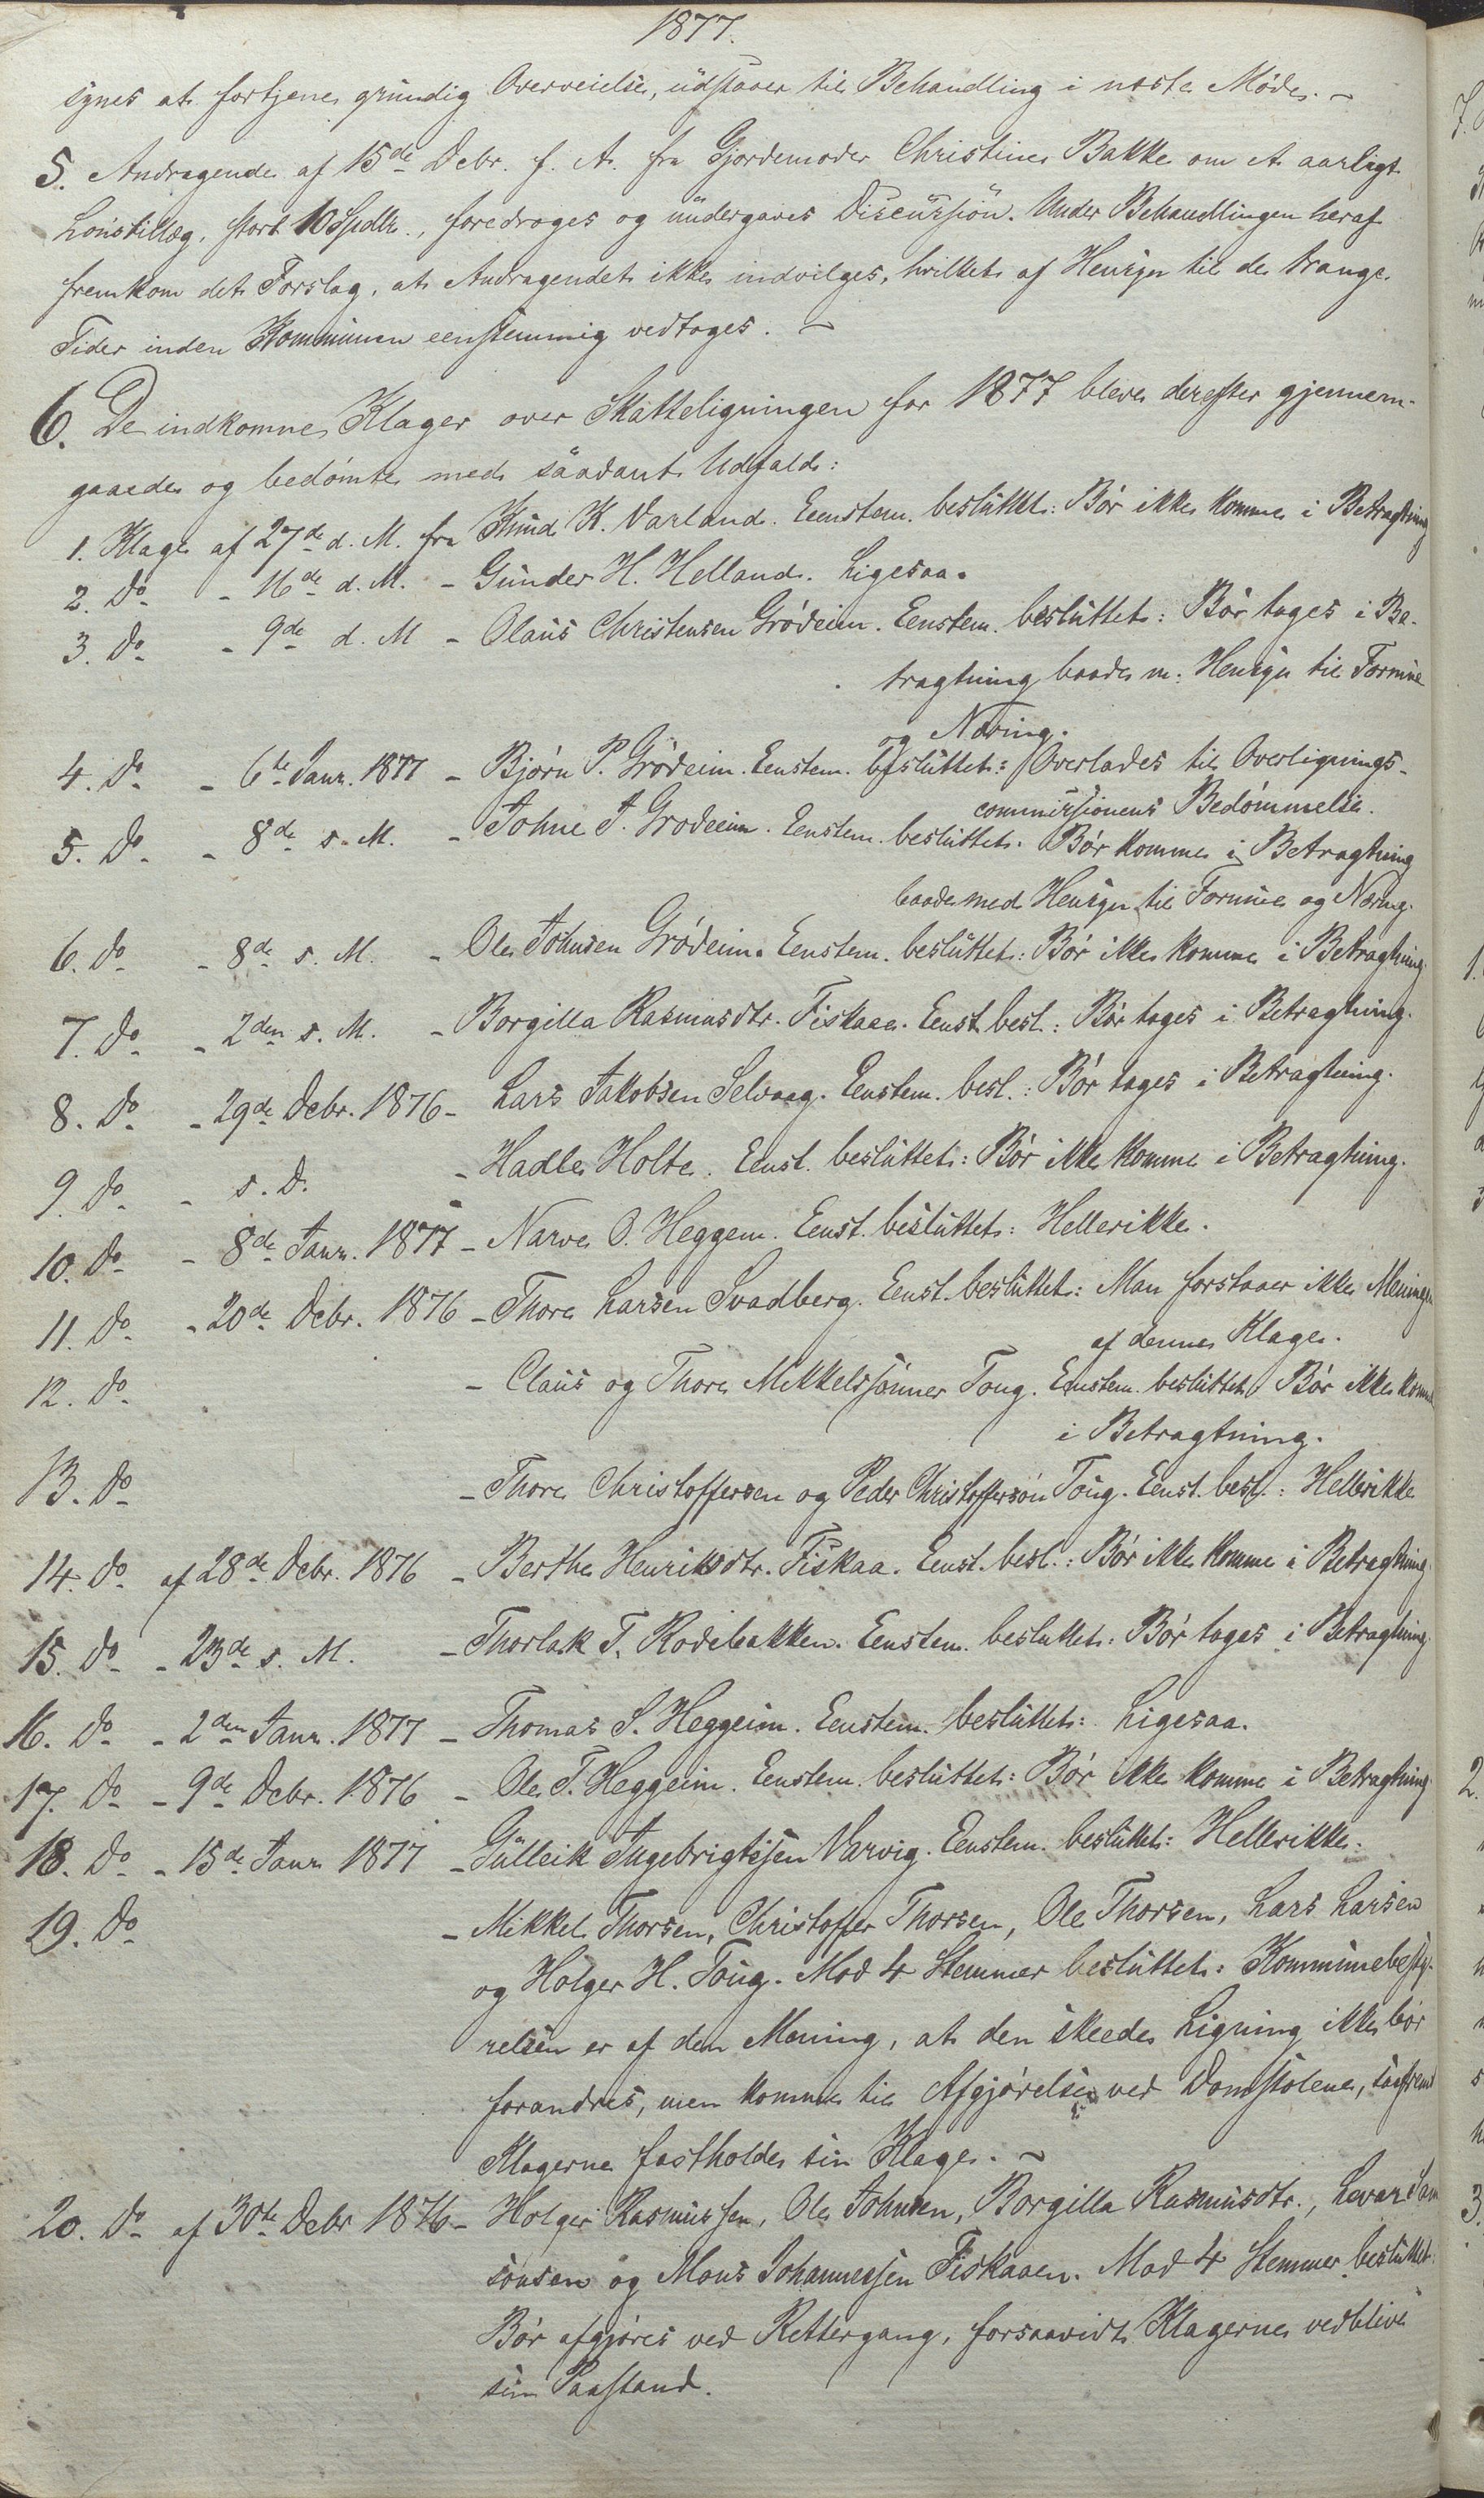 1877.
synes at fortjene grundig Overveielse, udstaaer til Behandling i næste Møde. ~
5. Andragende af 15de Debr. f. A. fra Gjordemoder Christine Bakke om et aarligt
Lønstillæg, stort 10 Spdlr., foredroges og undergaves Discussion. Under Behandlingen heraf
fremkom det Forslag, at Andragendet ikke indvilges, hvilket af Hensyn til de trange
Tider inden Kommunen eenstemmig vedtoges. ~
6. De indkomne Klager over Skatteligningen for 1877 bleve derefter gjennem-
gaaede og bedømte med saadant Udfald:
1. Klage af 27de d. M. fra Knud K. Varland. Eenstem. besluttet: Bør ikke komme i Betragtning
2. Do - 16de d. M. - Gunder H. Helland. Ligesaa.
3. Do - 9de d. M - Olaus Christensen Grødeim. Eenstem. besluttet: Bør tages i Be-
tragtning baade m: Hensyn til Formue
og Næring.
4. Do - 6te Janr. 1877 - Bjørn P. Grødeim. Eenstem. besluttet: Overlades til Overlignings-
commissionens Bedømmelse.
5. Do - 8de s. M. - Johne J. Grødeim. Eenstem. besluttet. Bør komme i Betragtning
baade med Hensyn til Formue og Næring.
6. Do - 8de s. M. - Ole Johnsen Grødeim. Eenstem. besluttet: Bør ikke komme i Betragtning.
7. Do - 2den s. M. - Borgilla Rasmusdtr. Fiskaae. Eenst. besl.: Bør tages i Betragtning.
8. Do - 29de Debr. 1876 - Lars Jakobsen Selvaag. Eenstem. besl.: Bør tages i Betragtning.
9. Do - s. D. - Hadle Holte. Eenst. besluttet: Bør ikke komme i Betragtning.
10. Do - 8de Janr. 1877 - Narve O. Heggem. Eenst. besluttet: Hellerikke.
11. Do - 20de Debr. 1876 - Thore Larsen Svadberg. Eenst. besluttet: Man forstaaer ikke Meningen
af denne Klage.
12. Do - Claus og Thore Mikkelssønner Toug. Eenstem. besluttet: Bør ikke komme
i Betragtning.
13. Do - Thore Christoffersen og Peder Christoffersøn Toug. Eenst. besl.: Hellerikke
14. Do af 28de Debr. 1876 - Berthe Henriksdtr. Fiskaa. Eenst. besl.: Bør ikke komme i Betragtning.
15. Do - 23de s. M. - Thorlak T. Rodebakken. Eenstem. besluttet: Bør tages i Betragtning.
16. Do - 2den Janr. 1877 - Thomas S. Heggeim. Eenstem. besluttet: Ligesaa.
17. Do - 9de Debr. 1876 - Ole T. Heggeim. Eenstem. besluttet: Bør ikke komme i Betragtning.
18. Do - 15de Janr 1877 - Gulleik Ingebrigtsen Narvig. Eenstem. besluttet: Hellerikke.
19. Do - Mikkel Thorsen, Christoffer Thorsen, Ole Thorsen, Lars Larsen
og Holger H. Toug. Mod 4 Stemmer besluttet: Kommunebesty-
relsen er af den Mening, at den skeede Ligning ikke bør
forandres, men komme til Afgjørelse ved Domstolene, saafremt
Klagerne fastholde sin Klage. ~
20. Do af 30te Debr 1876 - Holger Rasmussen, Ole Johnsen, Borgilla Rasmusdtr., Levard Sam
sonsen og Mons Johannessen Fiskaaen. Mod 4 Stemmer besluttet:
Bør afgjøres ved Rettergang, forsaavidt Klagerne vedblive
sin Paastand.